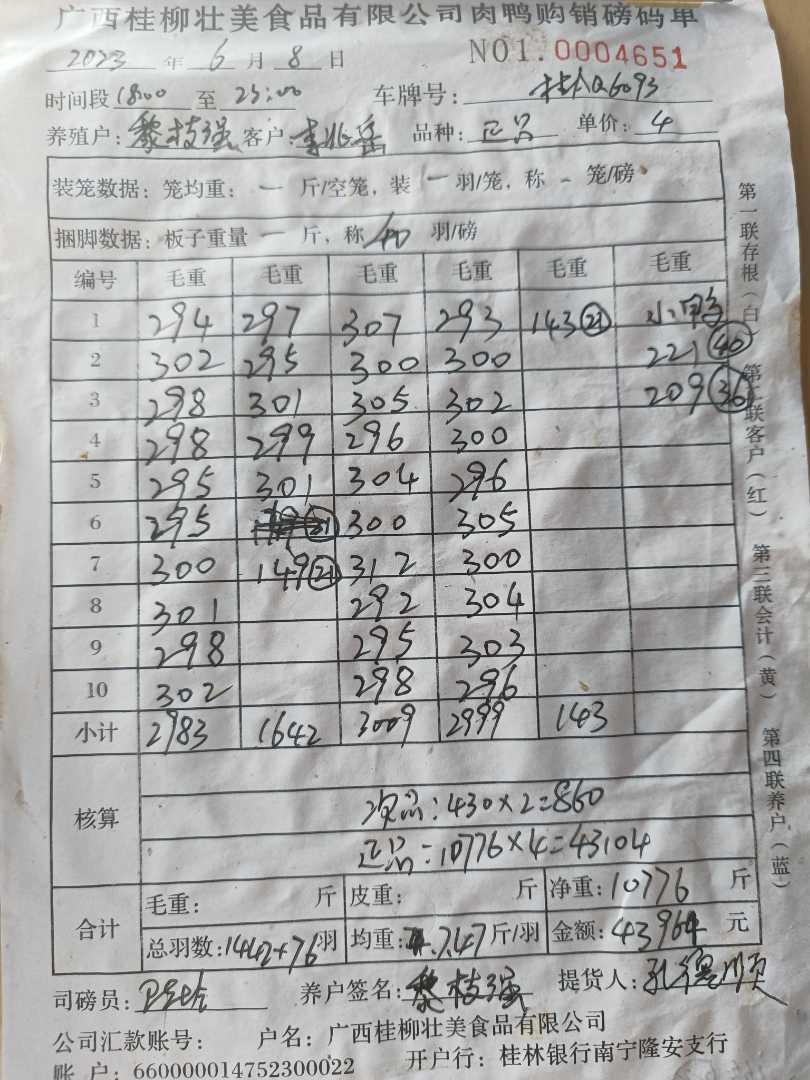 广西桂柳壮美食品有限公司肉鸭购销磅码单
2023 年 6 月 8 日 NO1.0004651
时间段 18:00 至 23:00 车牌号: Q6093
养殖户: 黎枝强 客户: 李兆岳 品种: 正品 单价: 4
装笼数据: 笼均重: 一 斤/空笼, 装 一 羽/笼, 称 - 笼/磅
捆脚数据: 板子重量 一 斤, 称 40 羽/磅
编号 毛重 毛重 毛重 毛重 毛重 毛重
1 294 297 307 293 143 21 小鸭
2 302 295 300 300 221 40
3 298 301 305 302 209 36
4 298 299 296 300
5 295 301 304 296
6 295 21 300 305
7 300 149 21 312 300
8 301 292 304
9 298 295 303
10 302 298 296
小计 2983 1642 3009 2999 143
核算
次品: 430×2=860
正品:10776×4=43104
合计
毛重: 斤 皮重: 斤 净重: 10776 斤
总羽数: 1442+76 羽 均重: 7.747 斤/羽 金额: 43964 元
司磅员: 养户签名: 黎枝强 提货人: 孔德顺
公司汇款账号: 户名: 广西桂柳壮美食品有限公司
账 户: 660000014752300022 开户行: 桂林银行南宁隆安支行
第一联存根(白) 第二联客户(红) 第三联会计(黄) 第四联养户(蓝)